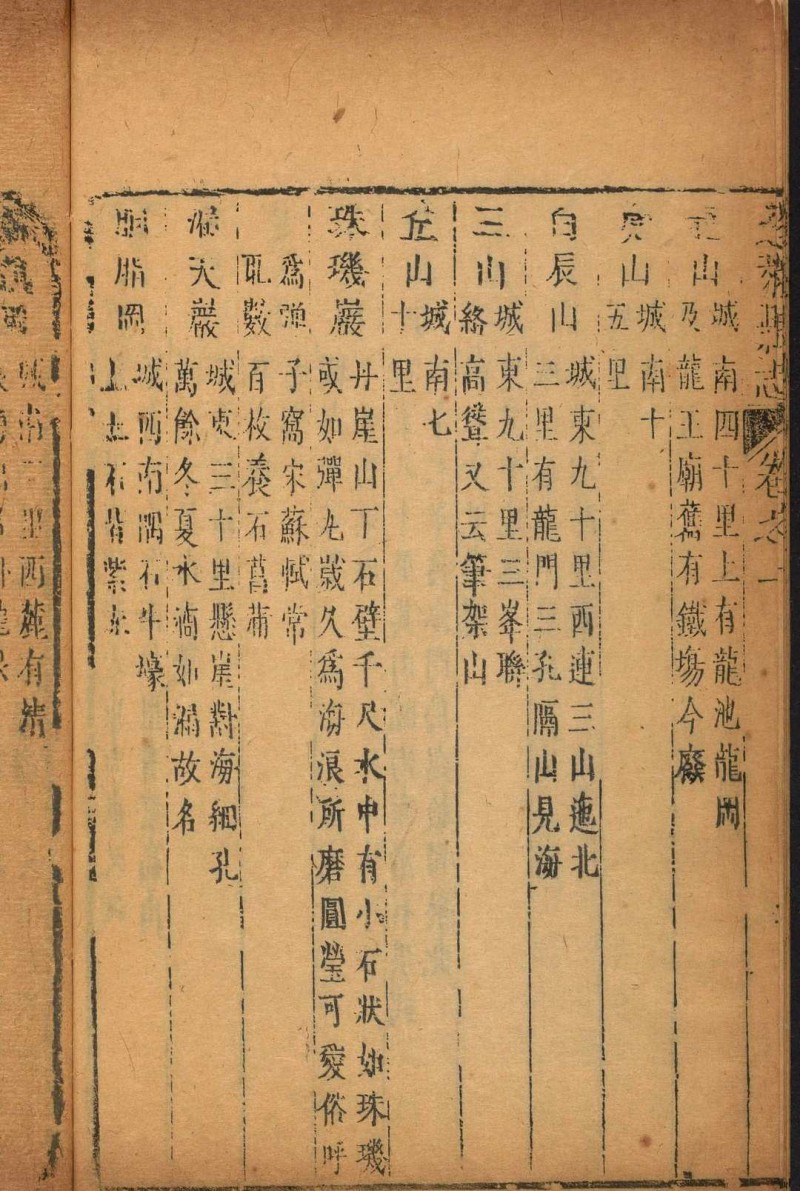 縣志 卷之一
山 城南四十里上有龍池龍岡
及龍王廟舊有鐵塲今廢
山 城南十
五里
白辰山 城東九十里西連三山迤北
三里有龍門三孔隔山見海
三山 城東九十里三峯聯
絡高聳又云筆架山
丘山 城南七
十里
珠璣巖 丹崖山丁石壁千尺水中有小石狀如珠璣
或如彈丸歲久爲海浪所磨圓瑩可愛俗呼
爲彈子窩宋蘇軾常
取數百枚養石菖蒲
漏天巖 城東三十里懸崖對海細孔
萬餘冬夏水滴如漏故名
胭脂岡 城西南隅石牛壕
上土石皆紫赤
城南三里西麓有清